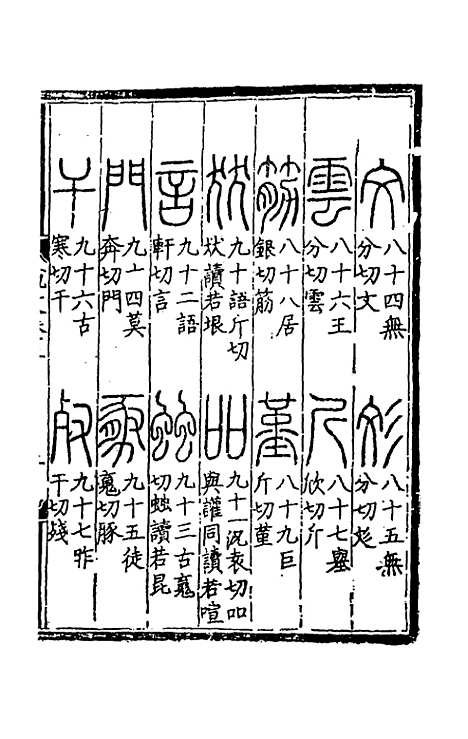 文
八十四無
分切文
彣
八十五無
分切彣
雲
八十六王
分切雲
斤
八十七舉
欣切斤
筋
八十八居
銀切筋
堇
八十九巨
斤切堇
㹜
九十語斤切
㹜讀若垠
吅
九十一況袁切吅
與讙同讀若喧
言
九十二語
軒切言
䖵
九十三古䰟
切䖵讀若昆
門
九十四莫
奔切門
豚
九十五徒
䰟切豚
干
九十六古
寒切干
𣦼
九十七昨
干切殘